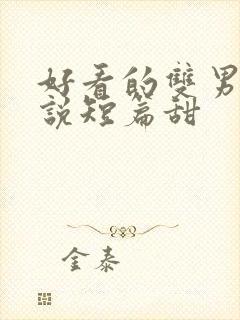 好看的雙男
說短篇甜
金泰